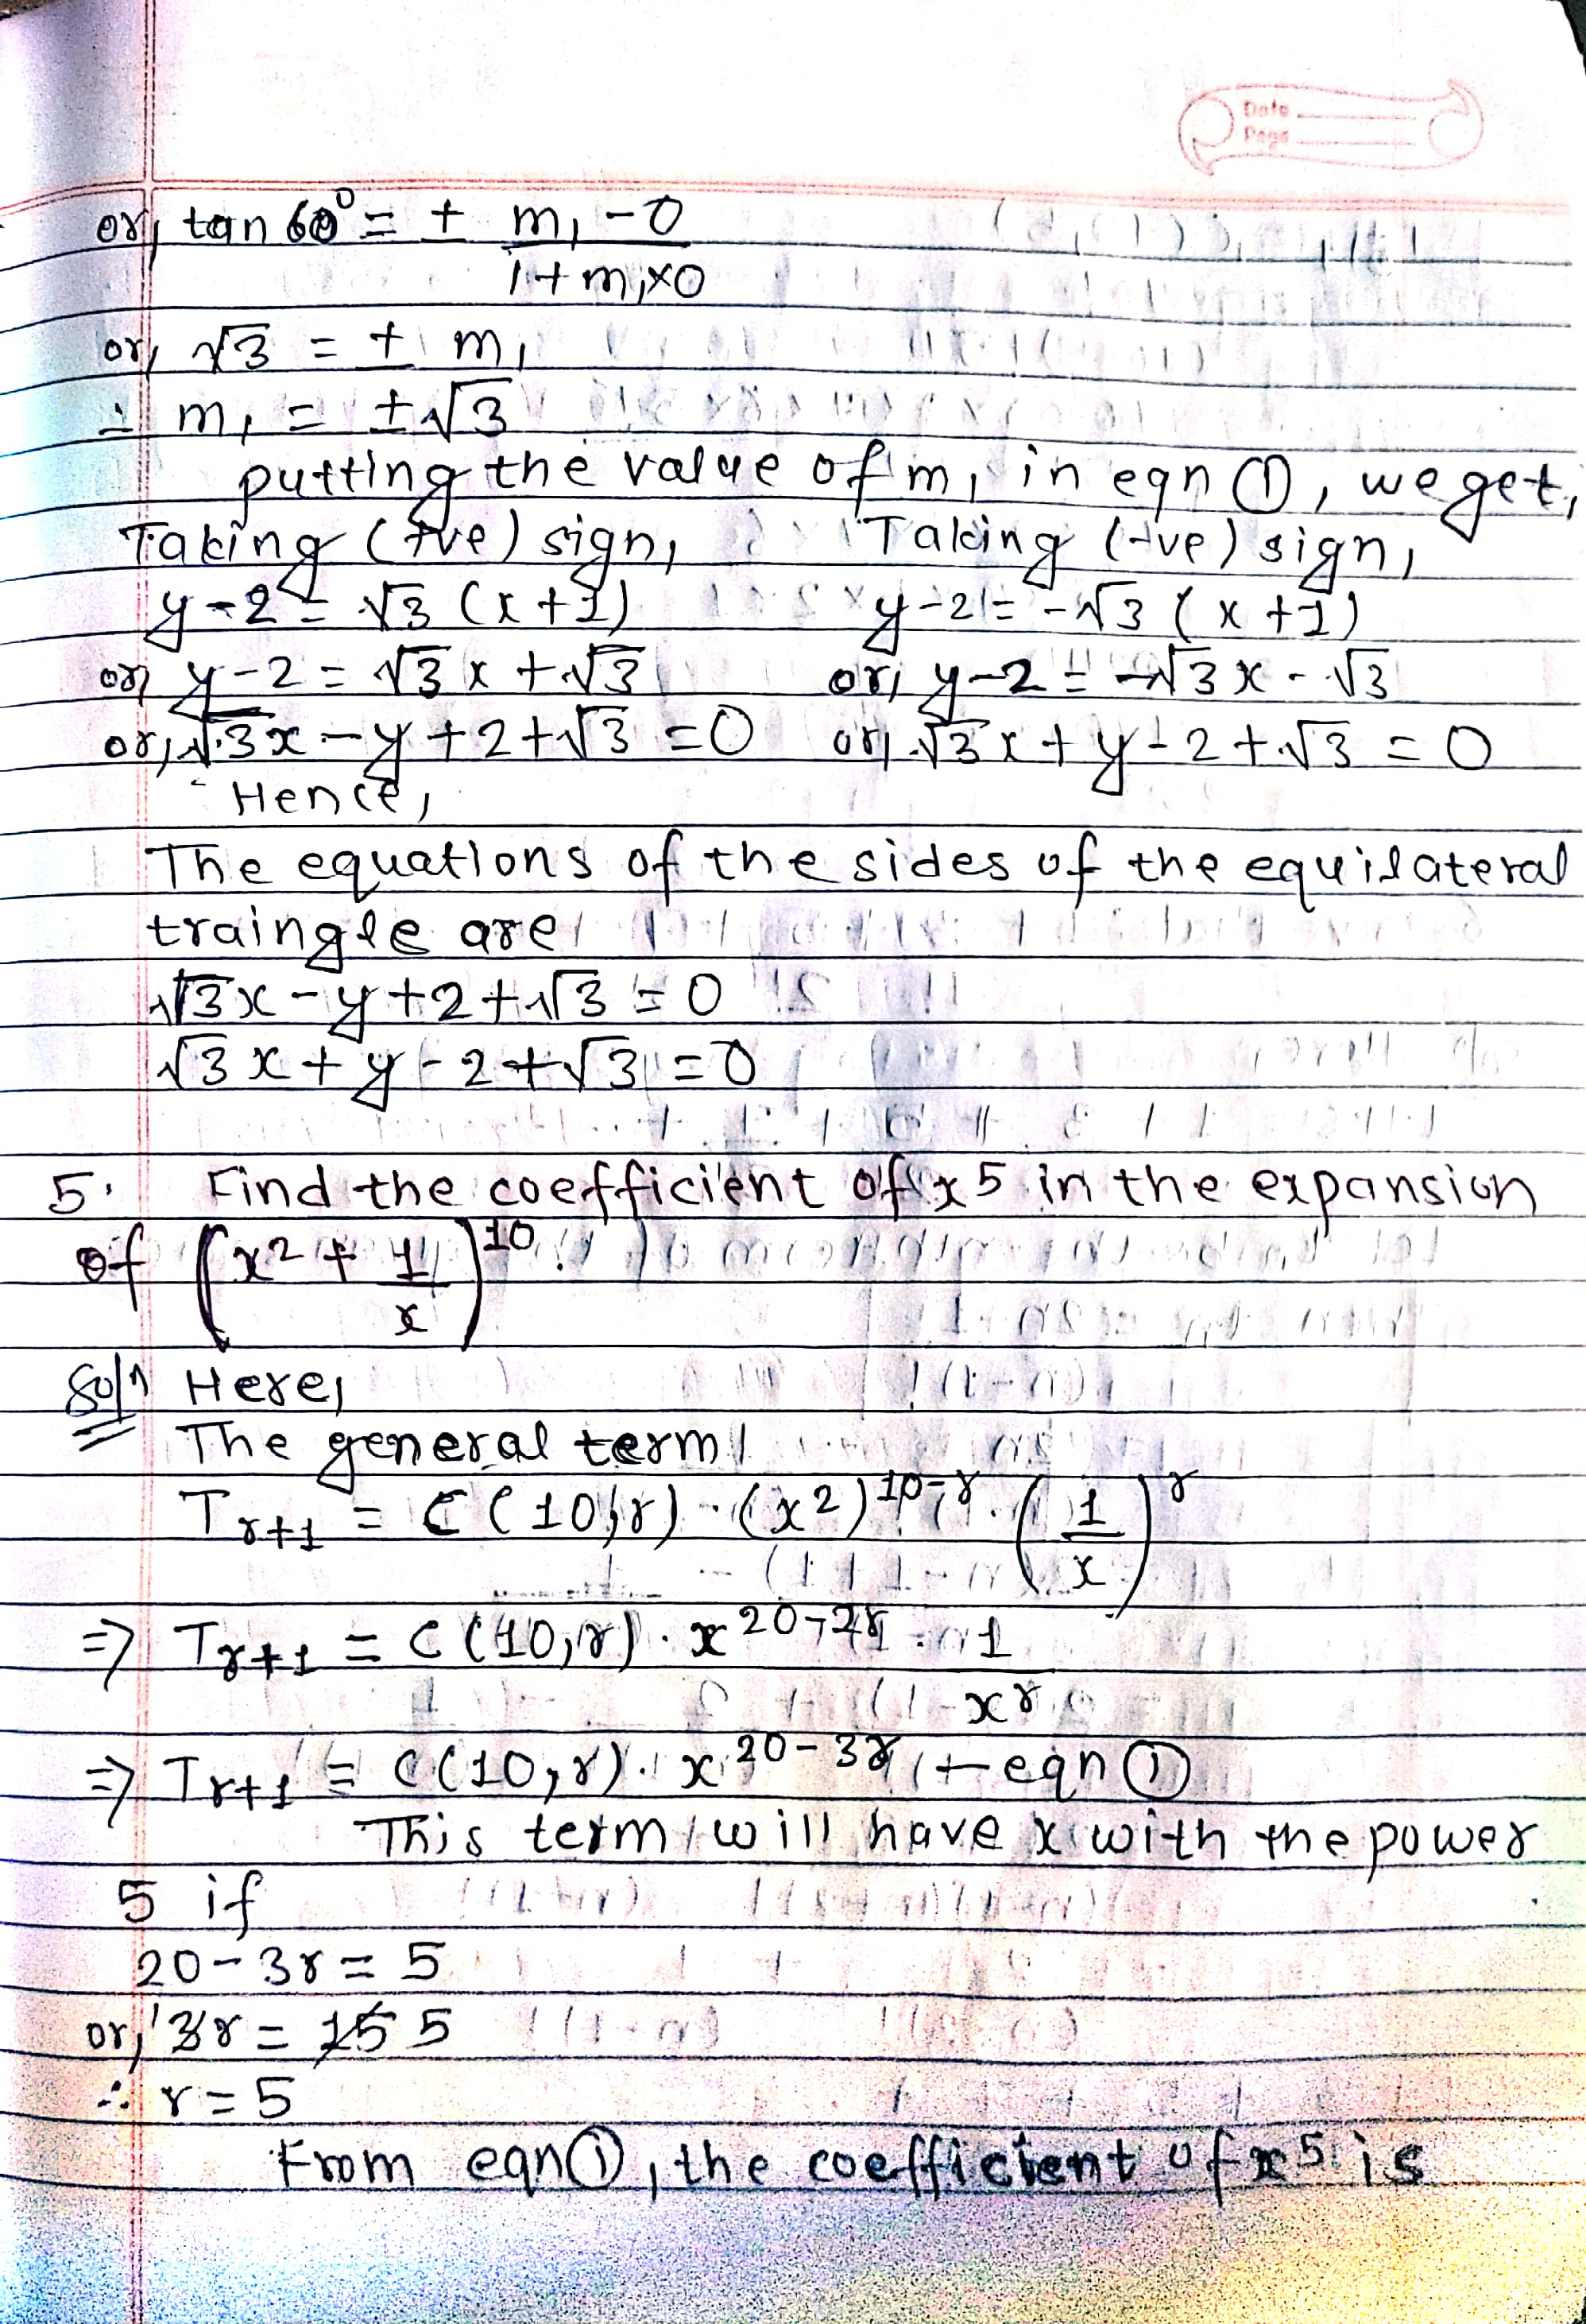 Date
Page
or, tan 60° = ± m₁ - 0
1 + m₁×0
or, √3 = ± m₁
∴ m₁ = ±√3
putting the value of m₁ in eqn ①, we get,
Taking (+ve) sign, Taking (-ve) sign,
y - 2 = √3 (x + 1) y - 2 = -√3 (x + 1)
or, y - 2 = √3 x + √3 or, y - 2 = -√3 x - √3
or, √3x - y + 2 + √3 = 0 or, √3 x + y - 2 + √3 = 0
Hence,
The equations of the sides of the equilateral
traingle are
√3x - y + 2 + √3 = 0
√3 x + y - 2 + √3 = 0
5. Find the coefficient of x5 in the expansion
of (x² + 1/x)¹⁰
Solⁿ Here,
The general term
Tr+1 = C (10, r) . (x2)¹⁰⁻ʳ . (1/x)ʳ
⇒ Tr+1 = C (10, r) . x²⁰⁻²ʳ . 1
xʳ
⇒ Tr+1 = C (10, r) . x²⁰⁻³ʳ ← eqn ①
This term will have x with the power
5 if
20 - 3r = 5
or, 3r = 15 5
∴ r = 5
From eqn ①, the coefficient of x5 is